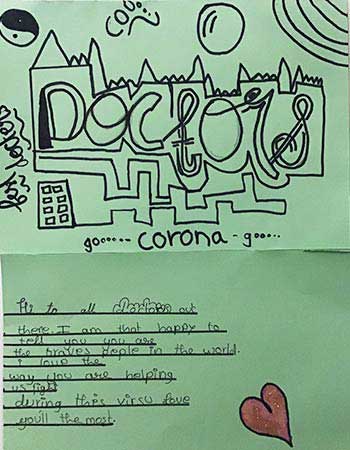 DOCtOrS
go...... corona - go....
Hi to all out
there. I am that happy to
tell you you are
the braves peple in the world.
i love the
way you are helping
us fight
during this virsu love
you'll the most.